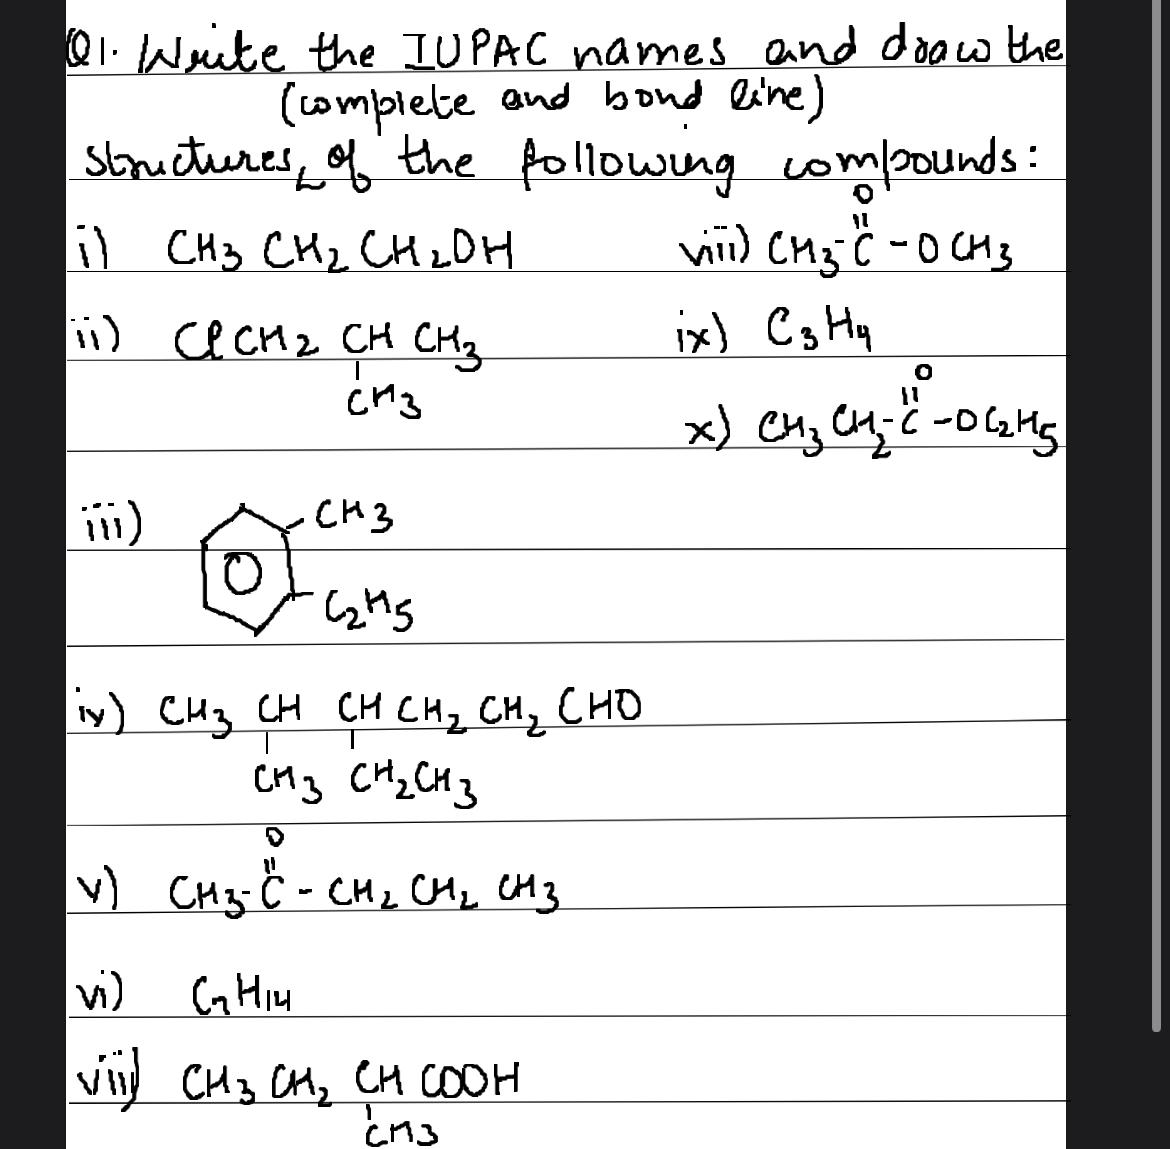 Q1. Write the IUPAC names and draw the
(complete and bond line)
structures, of the following compounds:
i) CH3 CH2 CH2OH
ii) Cl CH2 CH CH3
CH3
iii)
CH3
C2H5
iv) CH3 CH CH CH2 CH2 CHO
CH3 CH2CH3
O
v) CH3-C-CH2 CH2 CH3
vi) C7H14
vii) CH3 CH2 CH COOH
CH3
O
viii) CH3-C-OCH3
ix) C3H4
O
x) CH3 CH2-C-OC2H5